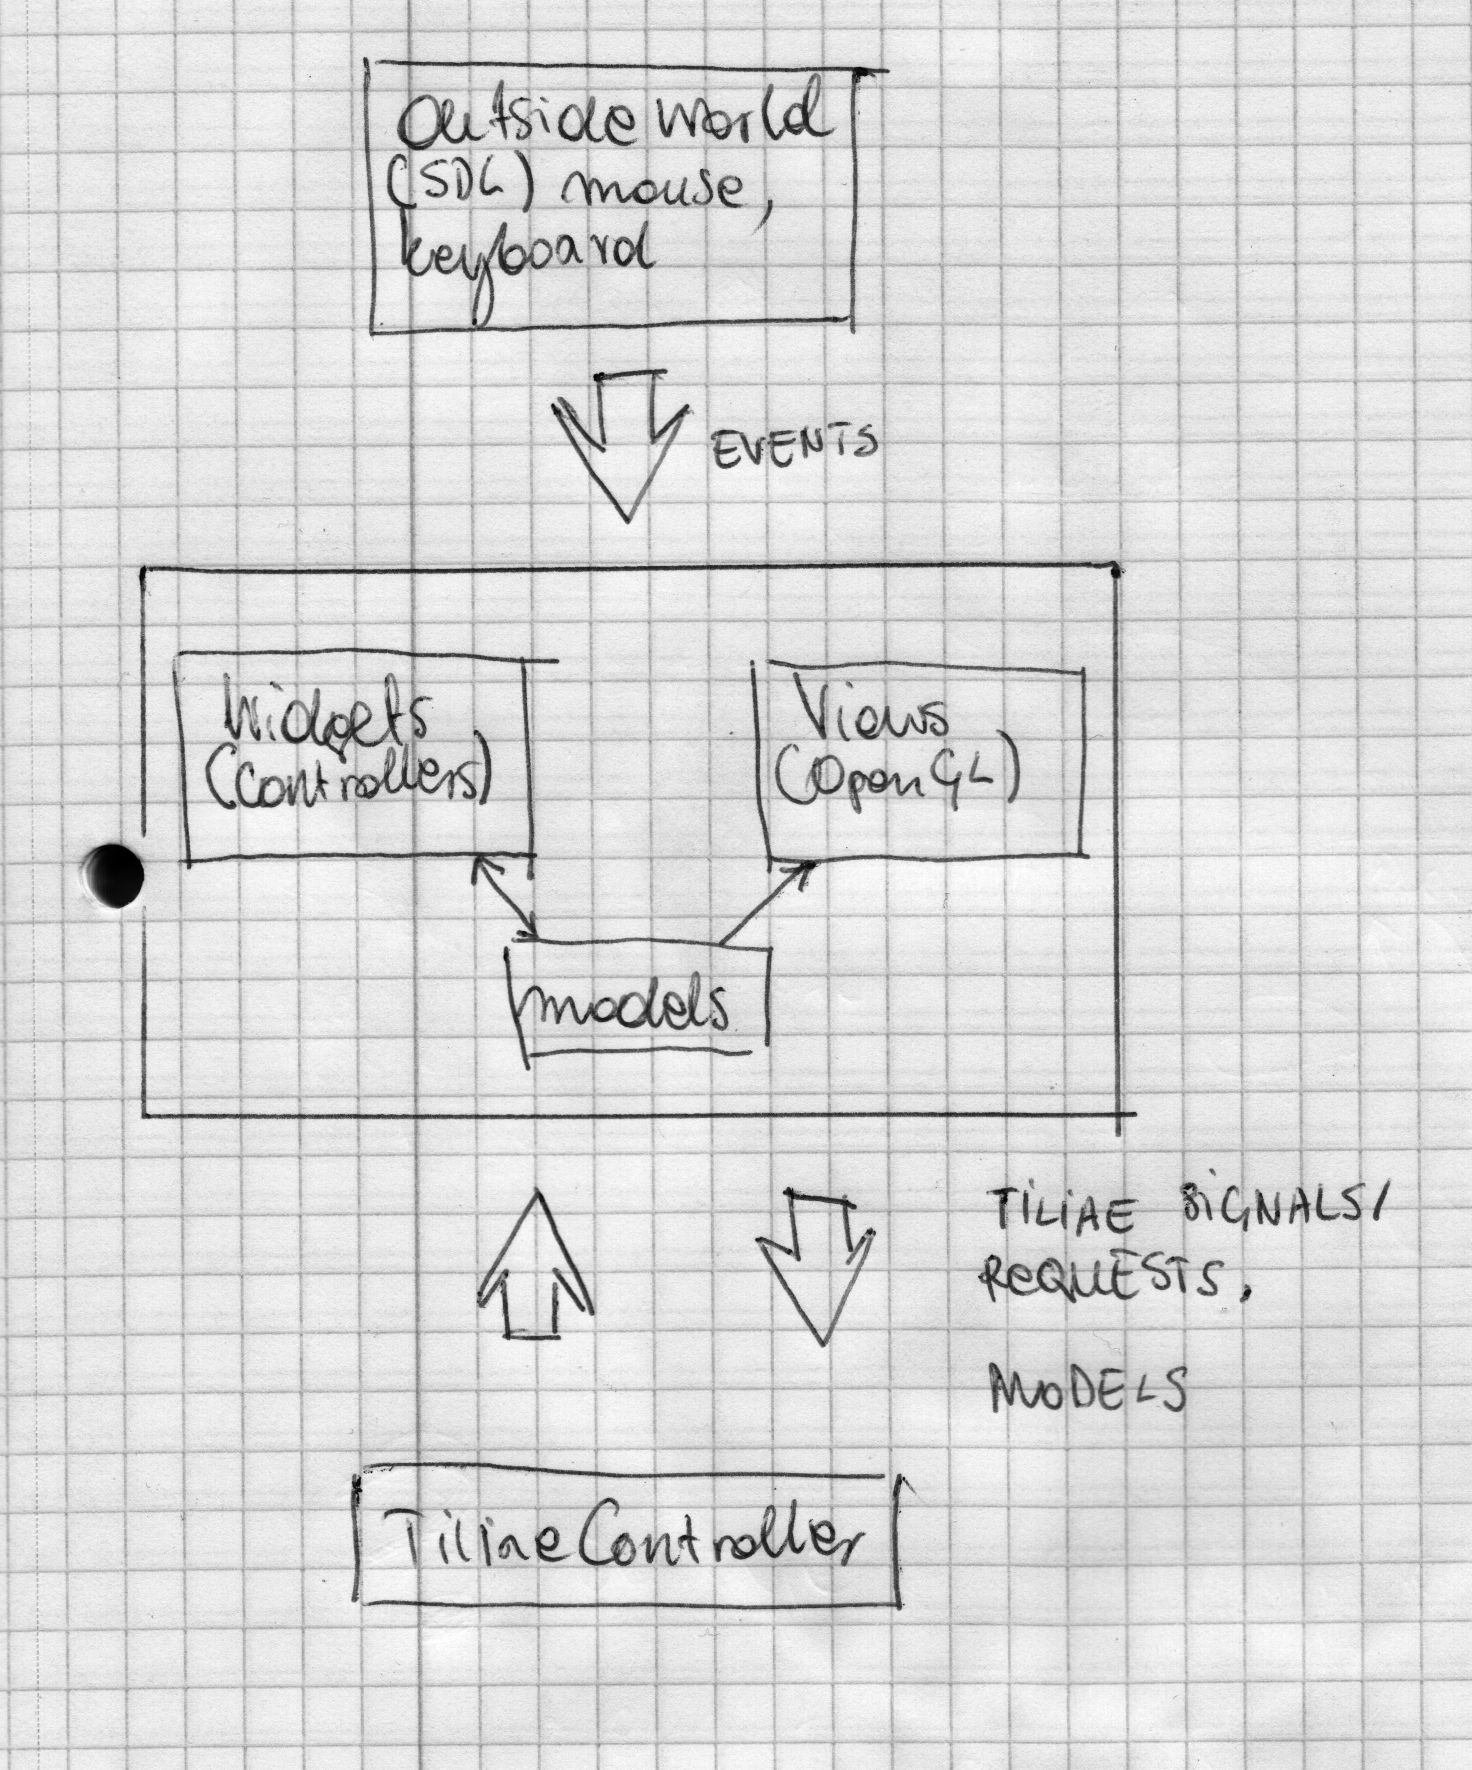 Outside World
(SDL) mouse,
keyboard
EVENTS
Widgets
(Controllers)
Views
(OpenGL)
models
TILIAE SIGNALS/
REQUESTS,
MODELS
TiliaeController